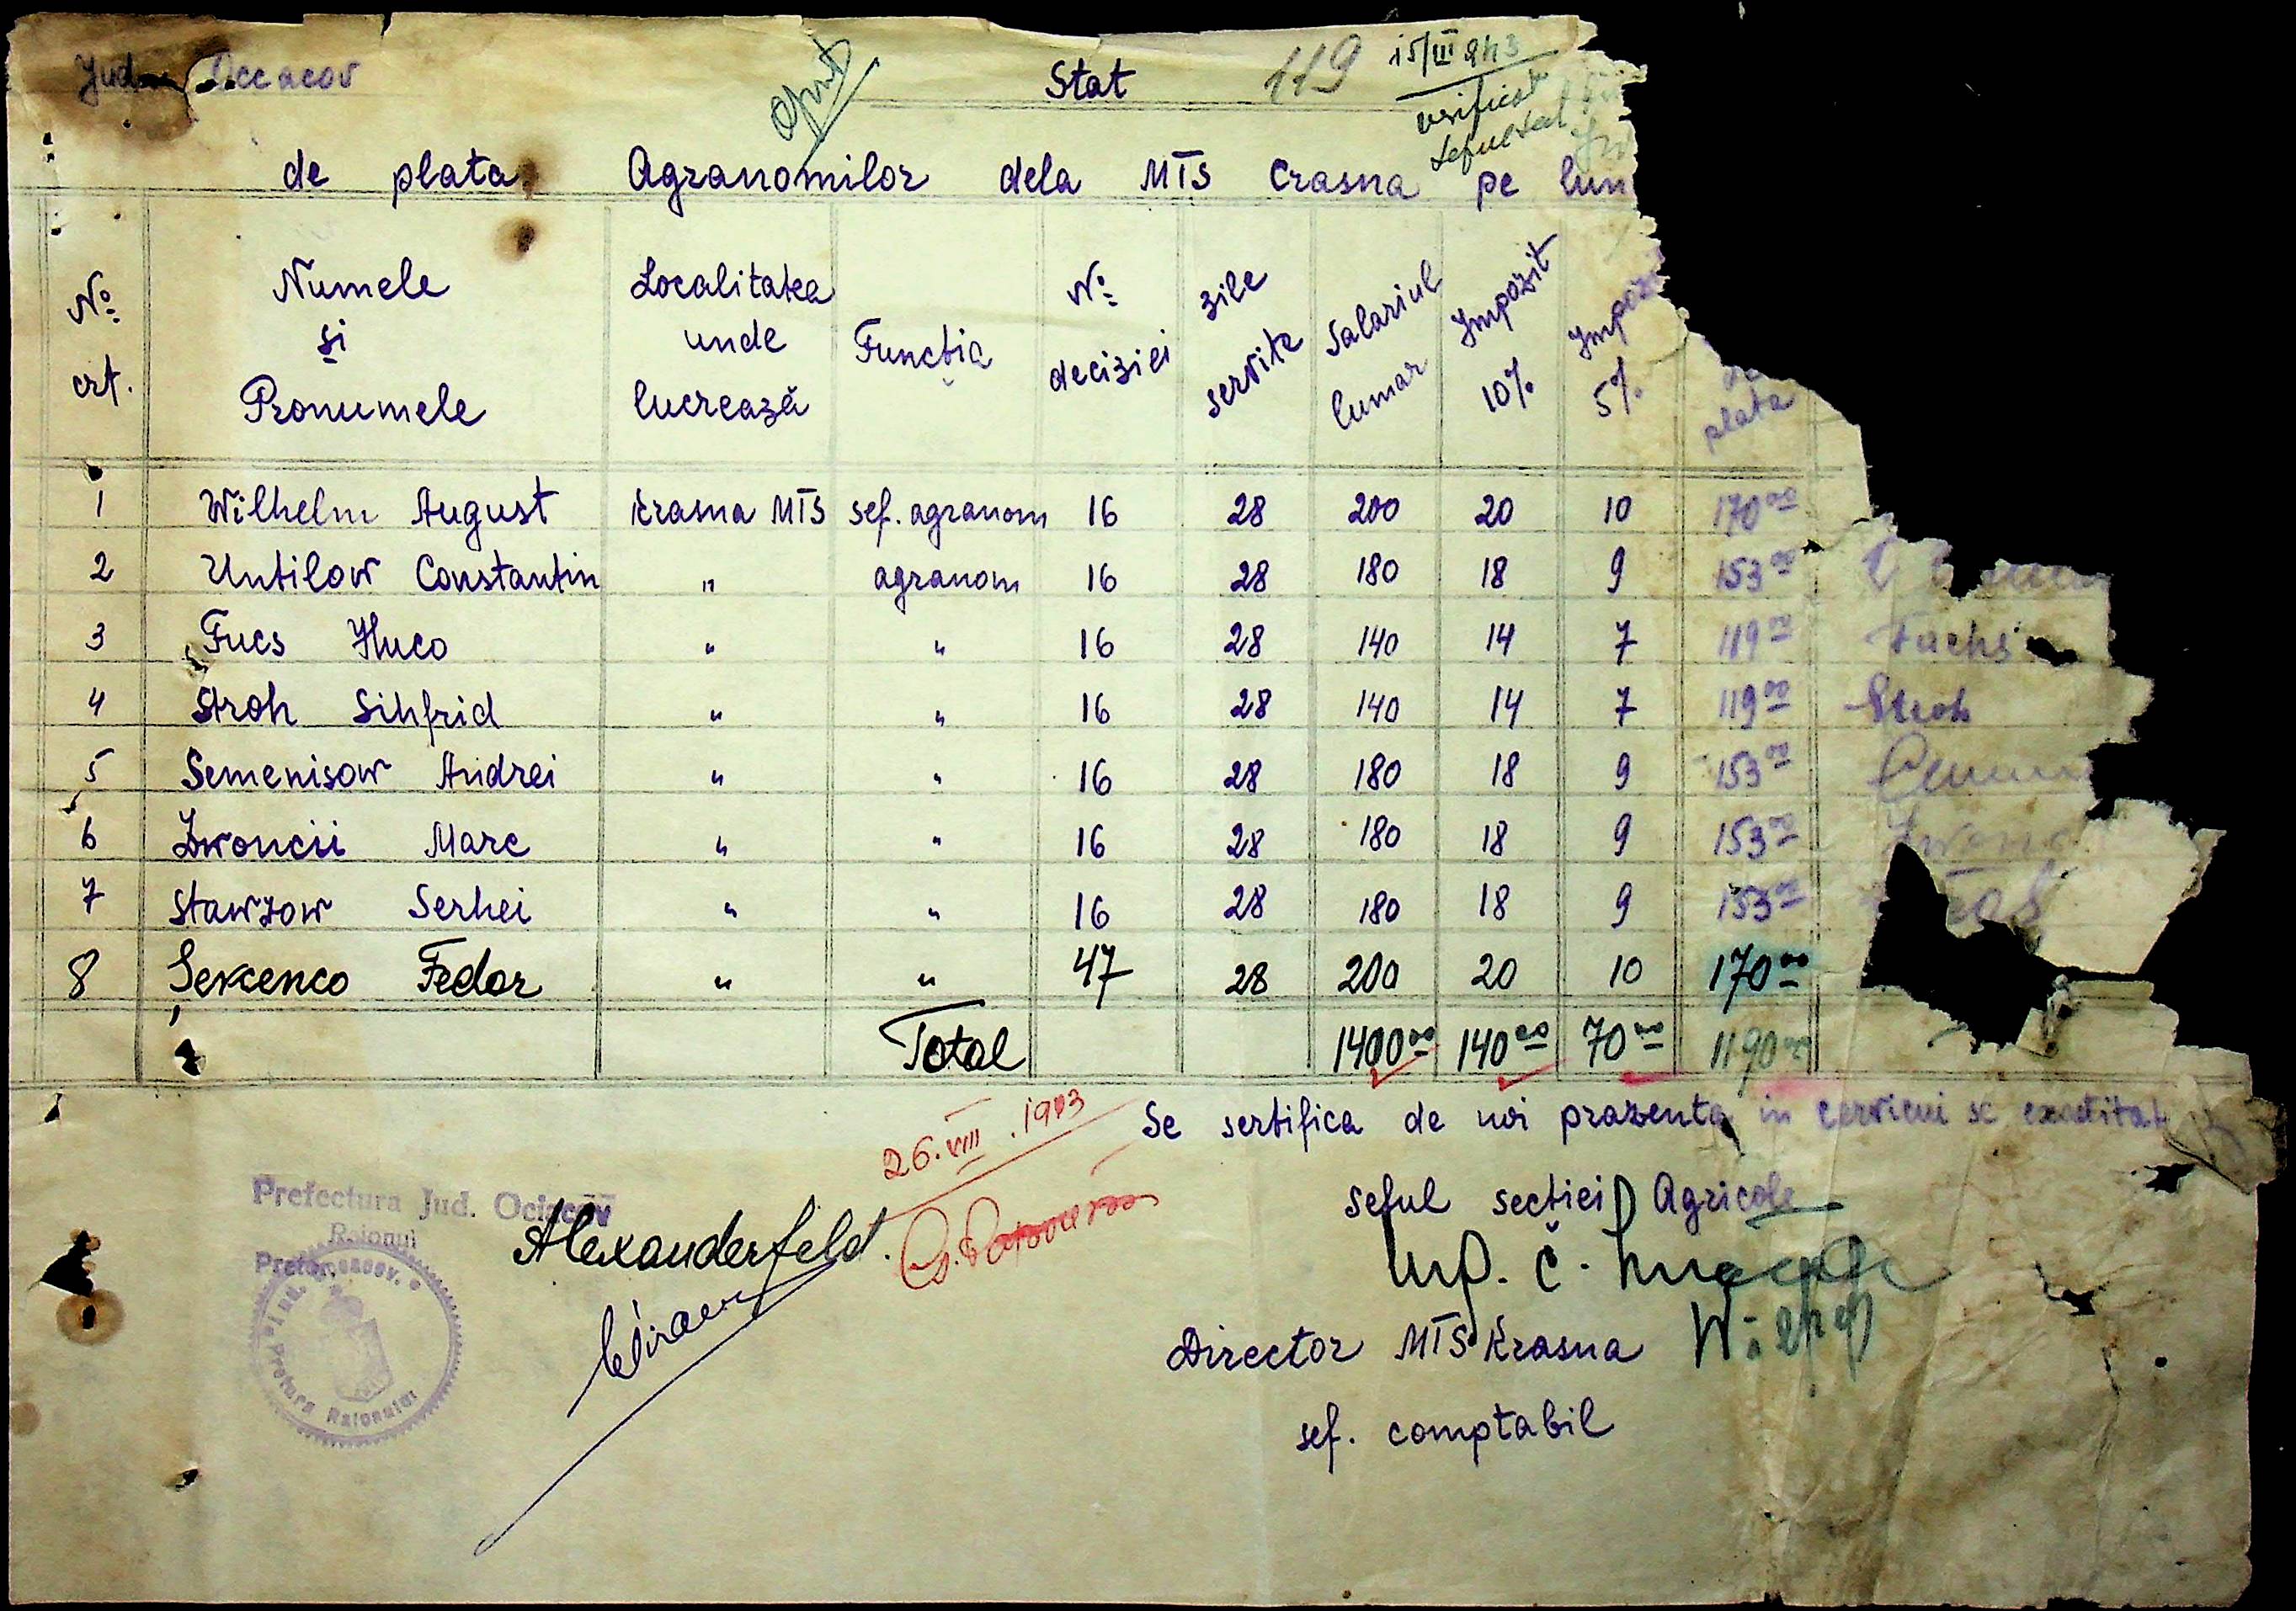 Jud Occacov
Stat 119 15/III 943
verificat
seful sect
de plata Agranomilor dela MTS Crasna pe lun
No crt. Numele și Pronumele Localitatea unde lucrează Funcția No deciziei zile servite Salariul lunar Impozit 10% Impozi 5% plata
1 Wilhelm August Krasna MTS sef. agranom 16 28 200 20 10 170 00
2 Untilow Constantin " agranom 16 28 180 18 9 153 00
3 Fucs Huco " " 16 28 140 14 7 119 00 Fuchs
4 Stroh Sihfrid " " 16 28 140 14 7 119 00 Stroh
5 Semenisow Andrei " " 16 28 180 18 9 153 00
6 Zwoncii Marc " " 16 28 180 18 9 153 00
7 Stawzow Serhei " " 16 28 180 18 9 153 00
8 Sevcenco Fedor " " 47 28 200 20 10 170 00
Total 1400 00 140 00 70 00 1190 00
26.VIII.1943
Se sertifica de noi prazenta in cervicui si exactitat
Prefectura Jud. Ociacov
Raionul
Alexanderfeld.
Pretura Raionului
seful sectiei Agricole
Director MTS Krasna
sef. comptabil